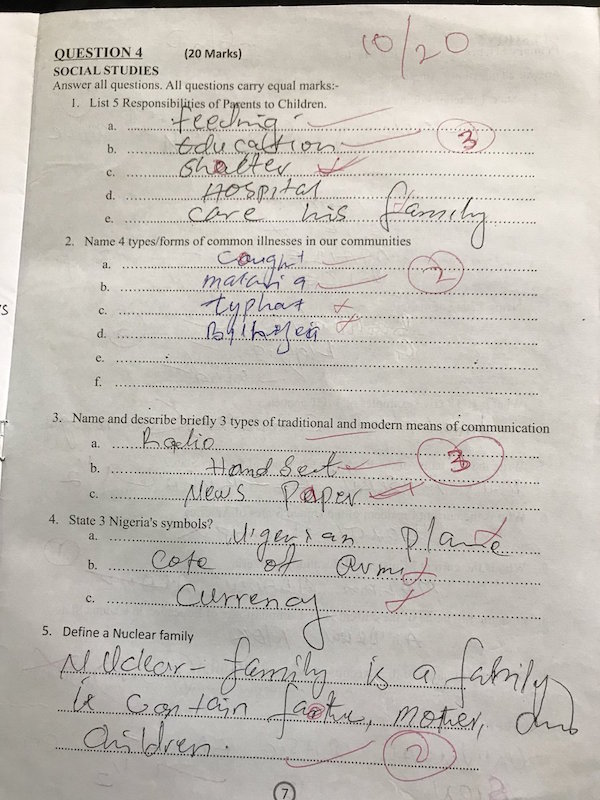 10/20
QUESTION 4 (20 Marks)
SOCIAL STUDIES
Answer all questions. All questions carry equal marks:-
1. List 5 Responsibilities of Parents to Children.
a. feeding
b. Education 3
c. Shalter
d. Hospital
e. care his family
2. Name 4 types/forms of common illnesses in our communities
a. Cought 2
b. malaria
c. typhat
d.
e.
f.
3. Name and describe briefly 3 types of traditional and modern means of communication
a. Radio
b. Hand Set 3
c. News Paper
4. State 3 Nigeria's symbols?
a. Nigerian
b. Cote of Arms
c. Currency
5. Define a Nuclear family
Nuclear - family is a fabrily
is contain mother, and
children. 2
7